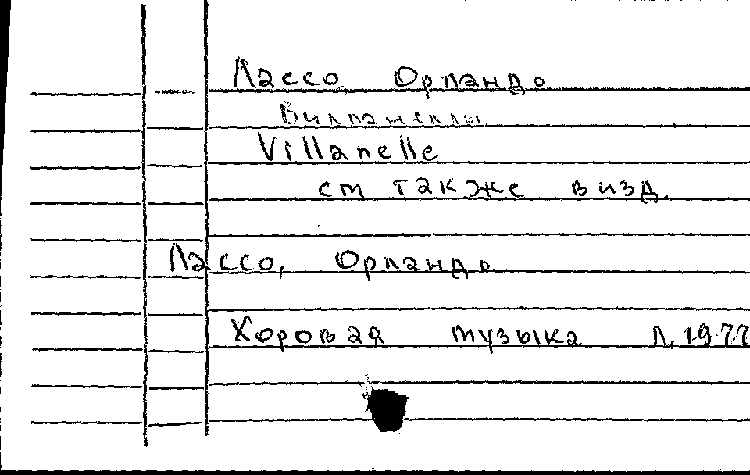 Лассо Орландо
Вилланеллы
Villanelle
см также в изд.
Лассо, Орландо
Хоровая музыка Л, 1977